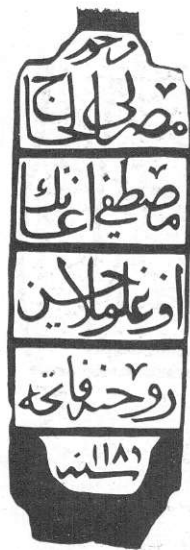 مصرلى الحاج
مصطفى اغانك
اوغلو ملا حسين
روحنه فاتحه
سنه ١١٨٩